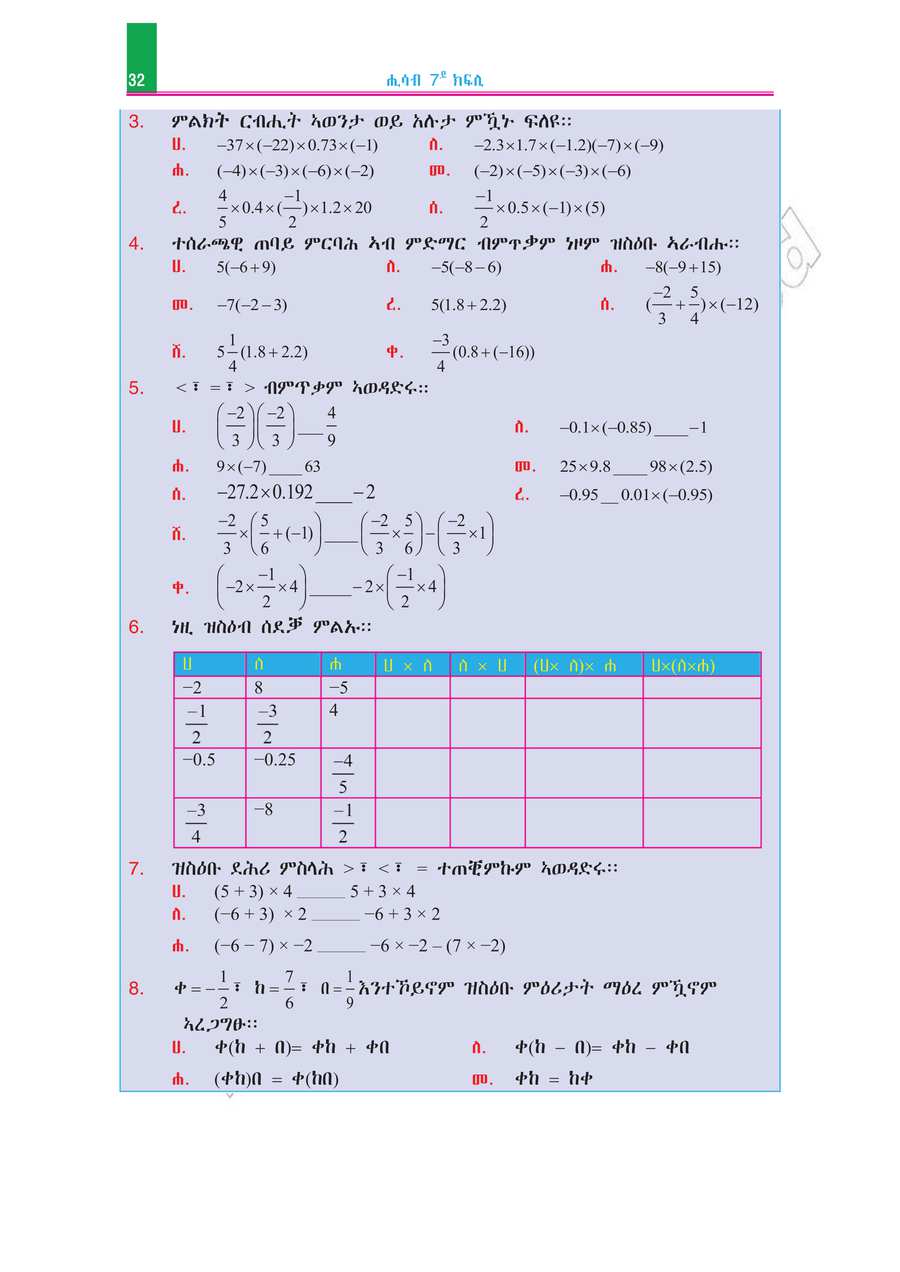 32 ሒሳብ 7ይ ክፍሊ
3. ምልክት ርብሒት ኣወንታ ወይ አሉታ ምዃኑ ፍለዩ።
ሀ. −37×(−22)×0.73×(−1) ለ. −2.3×1.7×(−1.2)(−7)×(−9)
ሐ. (−4)×(−3)×(−6)×(−2) መ. (−2)×(−5)×(−3)×(−6)
ረ. 4/5×0.4×(−1/2)×1.2×20 ሰ. −1/2×0.5×(−1)×(5)
4. ተሰራጫዊ ጠባይ ምርባሕ ኣብ ምድማር ብምጥቃም ነዞም ዝስዕቡ ኣራብሑ።
ሀ. 5(−6+9) ለ. −5(−8−6) ሐ. −8(−9+15)
መ. −7(−2−3) ረ. 5(1.8+2.2) ሰ. (−2/3+5/4)×(−12)
ሸ. 5 1/4(1.8+2.2) ቀ. −3/4(0.8+(−16))
5. <፣ =፣ > ብምጥቃም ኣወዳድሩ።
ሀ. (−2/3)(−2/3)___4/9 ለ. −0.1×(−0.85)____−1
ሐ. 9×(−7)____63 መ. 25×9.8____98×(2.5)
ሰ. −27.2×0.192____−2 ረ. −0.95__0.01×(−0.95)
ሸ. −2/3×(5/6+(−1))____(−2/3×5/6)−(−2/3×1)
ቀ. (−2×−1/2×4)_____−2×(−1/2×4)
6. ነዚ ዝስዕብ ሰደቓ ምልኡ።
ሀ ለ ሐ ሀ × ለ ለ × ሀ (ሀ× ለ)× ሐ ሀ×(ለ×ሐ)
−2 8 −5
−1/2 −3/2 4
−0.5 −0.25 −4/5
−3/4 −8 −1/2
7. ዝስዕቡ ደሕሪ ምስላሕ >፣ <፣ = ተጠቒምኩም ኣወዳድሩ።
ሀ. (5 + 3) × 4 ______ 5 + 3 × 4
ለ. (−6 + 3) × 2 ______ −6 + 3 × 2
ሐ. (−6 − 7) × −2 ______ −6 × −2 – (7 × −2)
8. ቀ = −1/2፣ ከ = 7/6፣ በ = 1/9 እንተኾይኖም ዝስዕቡ ምዕሪታት ማዕረ ምዃኖም
ኣረጋግፁ።
ሀ. ቀ(ከ + በ)= ቀከ + ቀበ ለ. ቀ(ከ − በ)= ቀከ − ቀበ
ሐ. (ቀከ)በ = ቀ(ከበ) መ. ቀከ = ከቀ